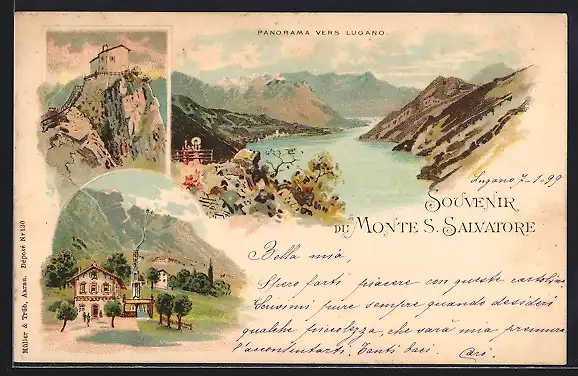 PANORAMA VERS LUGANO.
Lugano 7-1-99
SOUVENIR
DU MONTE S. SALVATORE
Bella mia,
Spero farti piacere con queste cartoline
Scrivimi pure sempre quando desideri
qualche piccolezza, che sarà mia premura
l'accontentarti. Tanti baci.
Müller & Trüb, Aarau. Déposé Nr 130